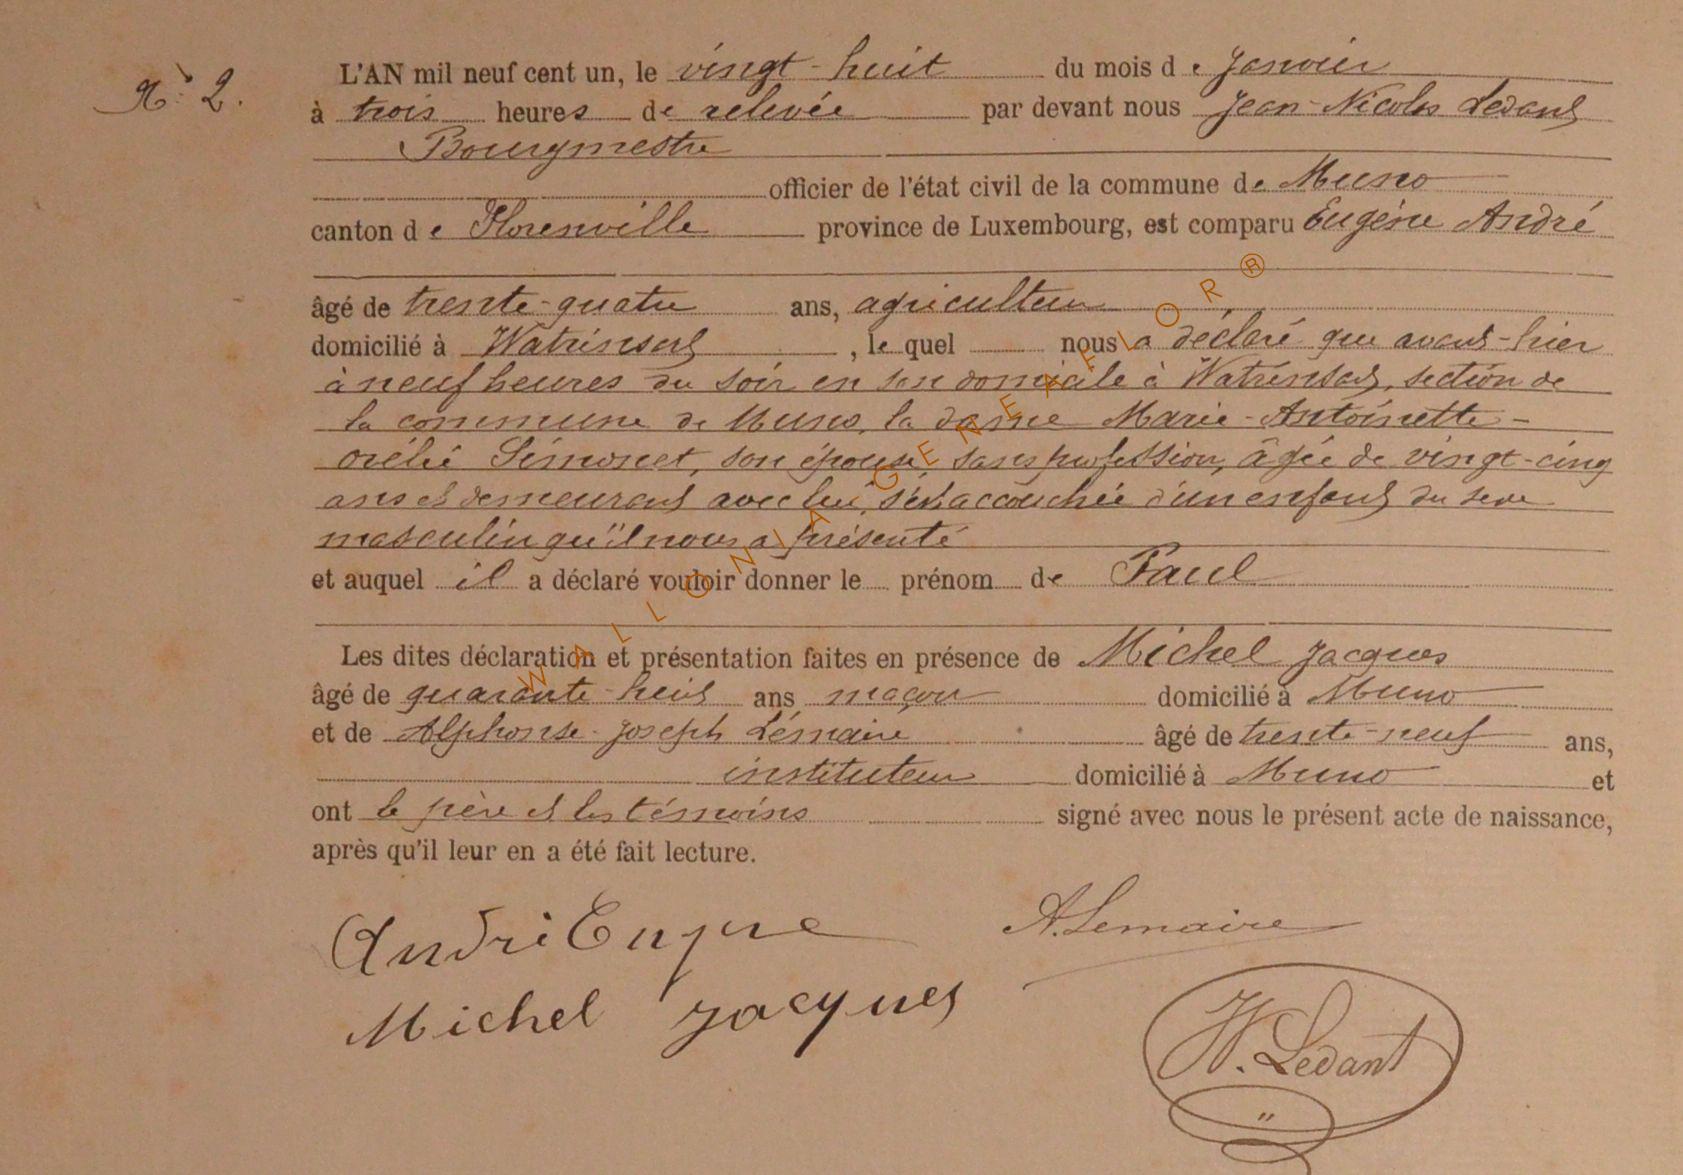 N° 2.
L'AN mil neuf cent un, le vingt-huit du mois de Janvier
à trois heures de relevée par devant nous Jean-Nicolas Ledant
Bourgmestre
officier de l'état civil de la commune de Muno
canton de Florenville province de Luxembourg, est comparu Eugène André
âgé de trente-quatre ans, agriculteur
domicilié à Watrinsart, lequel nous a déclaré que avant-hier
à neuf heures du soir en son domicile à Watrinsart, section de
la commune de Muno, la dame Marie-Antoinette-
Orélie Simonet, son épouse, sans profession, âgée de vingt-cinq
ans et demeurant avec lui, s'est accouchée d'un enfant du sexe
masculin qu'il nous a présenté
et auquel il a déclaré vouloir donner le prénom de Paul
Les dites déclaration et présentation faites en présence de Michel Jacques
âgé de quarante-huit ans maçon domicilié à Muno
et de Alphonse-Joseph Lémaire âgé de trente-neuf ans,
instituteur domicilié à Muno et
ont le père et les témoins signé avec nous le présent acte de naissance,
après qu'il leur en a été fait lecture.
André Eugne A. Lemaire
Michel Jacques
N. Ledant
WALLONIA GENEAFLOR ®